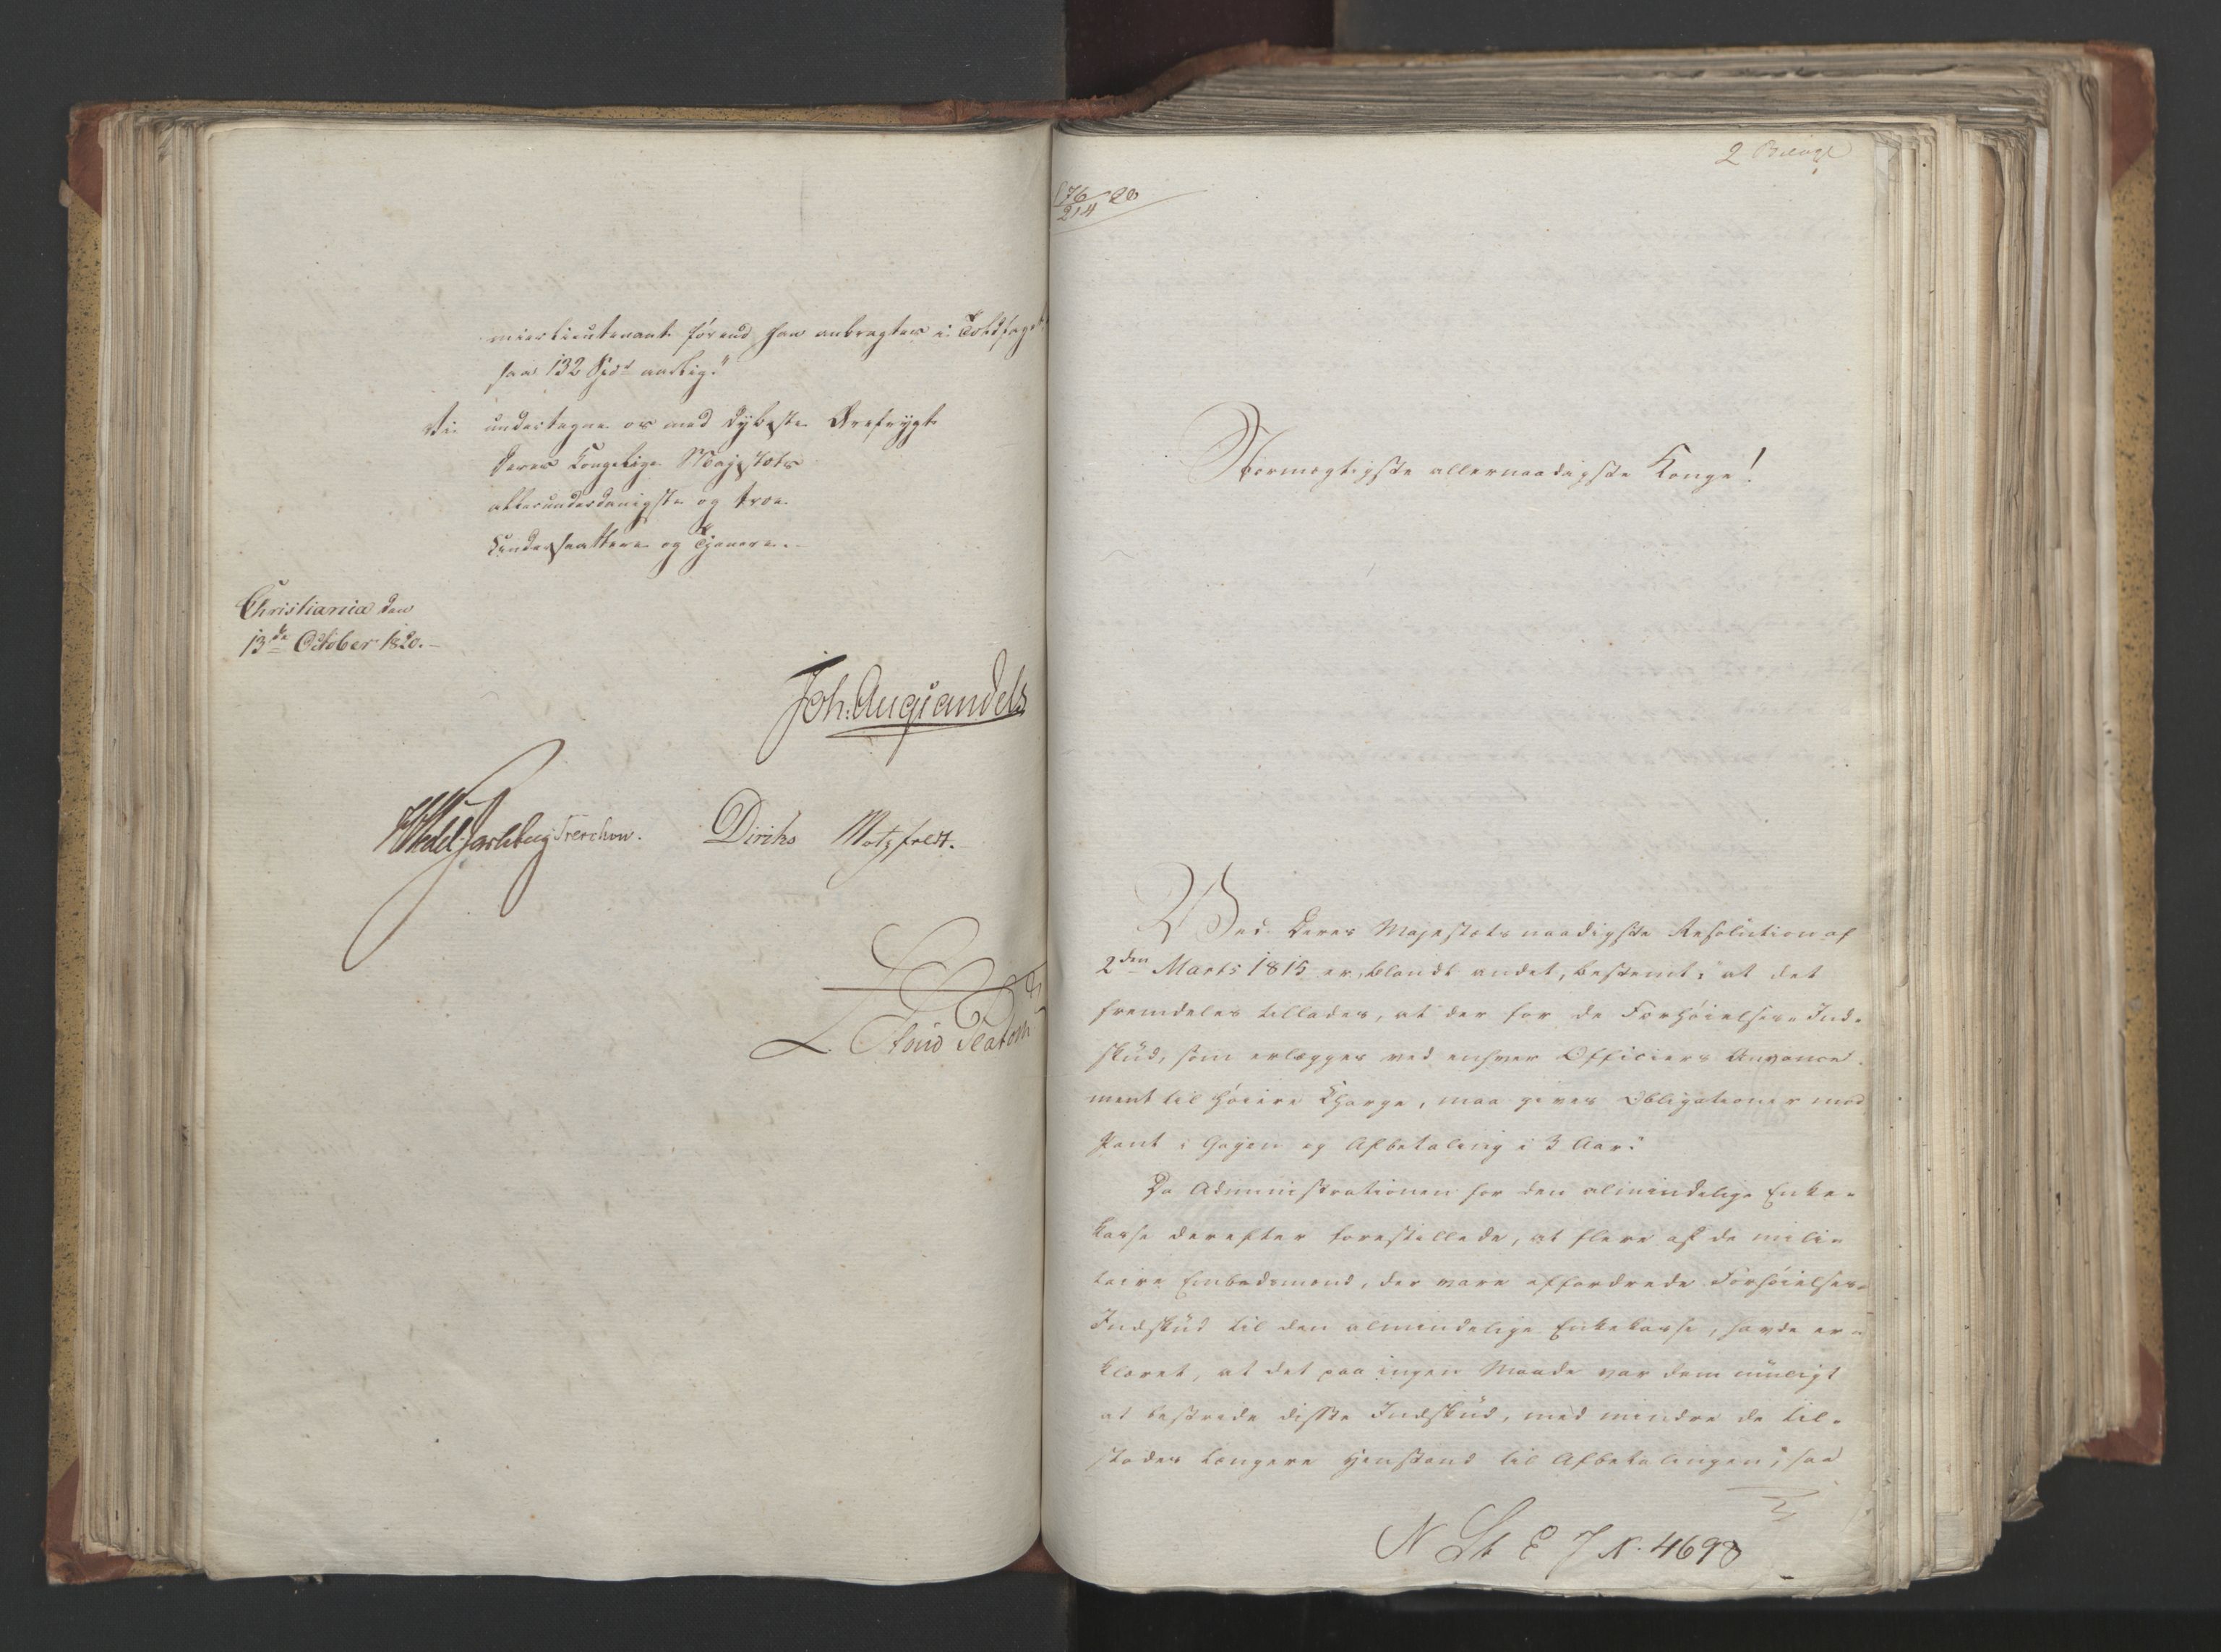 mierlieutenant førend han anbragtes i Toldfaget,
saa 132 Spd aarlig."
Vi undertegne os med dybeste Ærefrygt
Deres Kongelige Majestæts
allerunderdanigste og troe
Undersaattere og Tjenere.
Christiania den
13de October 1820.
Joh. Aug. Sandels
HWedel Jarlsberg Treschow. Diriks Motzfeldt.
L. Stoud Platou
2 Bilage
176/214 20
Stormægtigste allernaadigste Konge!
Ved Deres Majestæts naadigste Resolution af
2den Marts 1815 er, blandt andet, bestemt: "at det
fremdeles tillades, at der for de Forhøielses-Ind-
skud, som erlægges ved enhver Officiers Avance-
ment til høiere Charge, maa gives Obligationer mod
Pant i Gagen og Afbetaling i 3 Aar."
Da Administrationen for den almindelige Enke-
kasse derefter forestillede, at flere af de mili-
taire Embedsmænd, der vare affordrede Forhøielses-
Indskud til den almindelige Enkekasse, havde er-
klæret, at det paa ingen Maade var dem muligt
at bestride disse Indskud, med mindre de til-
stodes længere Henstand til Afbetalingen; saa
N St E J N. 4698